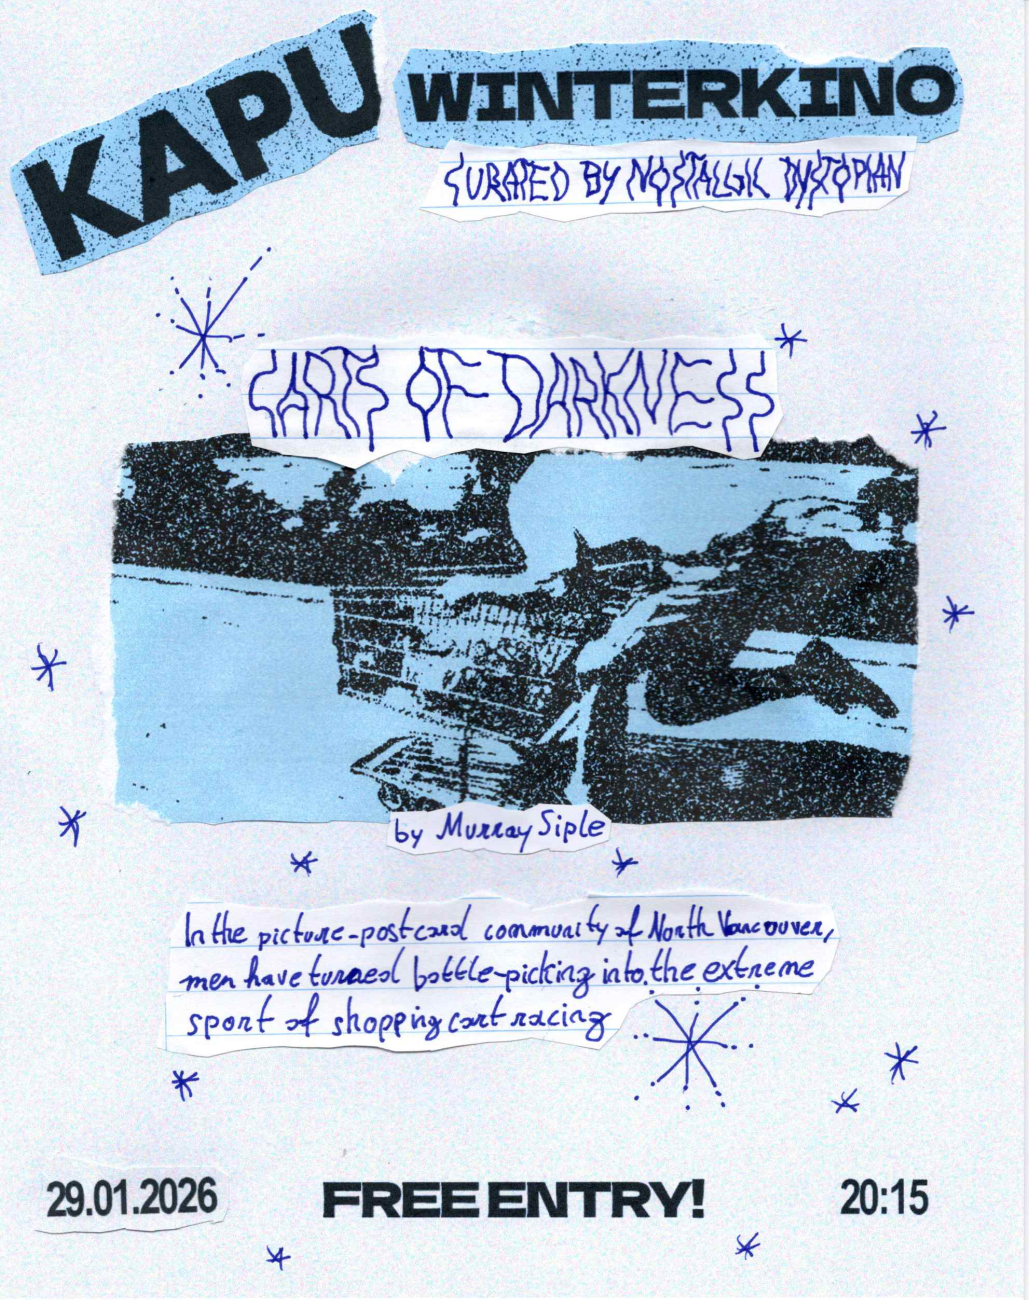 KAPU WINTERKINO
CURATED BY NOSTALGIC DYSTOPIAN
CARTS OF DARKNESS
by Murray Siple
In the picture-postcard community of North Vancouver,
men have turned bottle-picking into the extreme
sport of shopping cart racing
29.01.2026 FREE ENTRY! 20:15